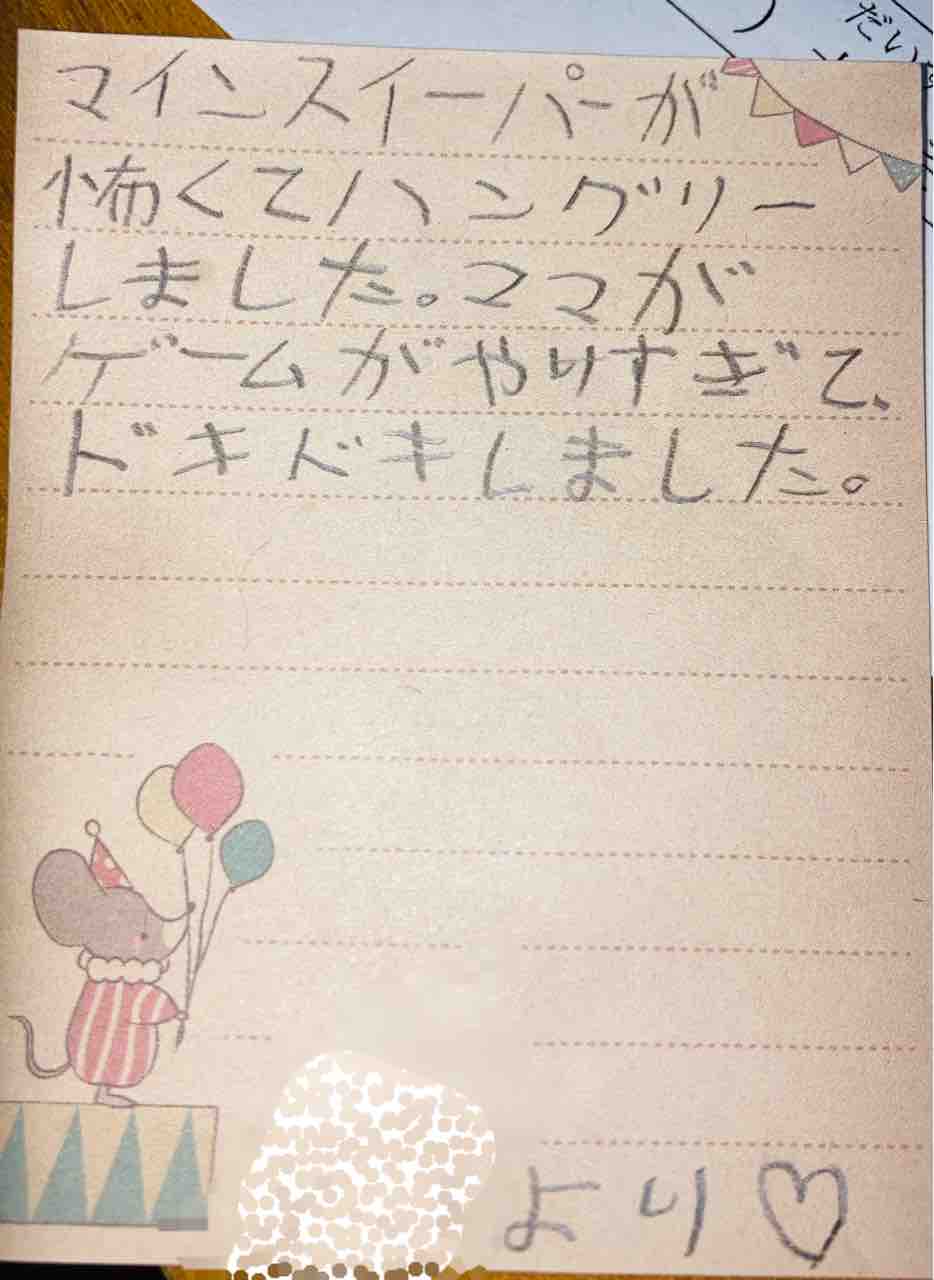 だい
マインスイーパーが
怖くてハングリー
しました。ママが
ゲームがやりすぎて、
ドキドキしました。
より♡